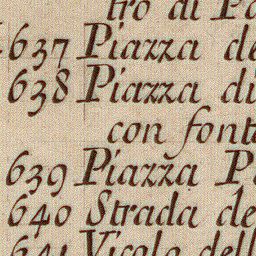 tro di Pa
637 Piazza de
638 Piazza di
con font
639 Piazza P
640 Strada de
641 Vicolo dell